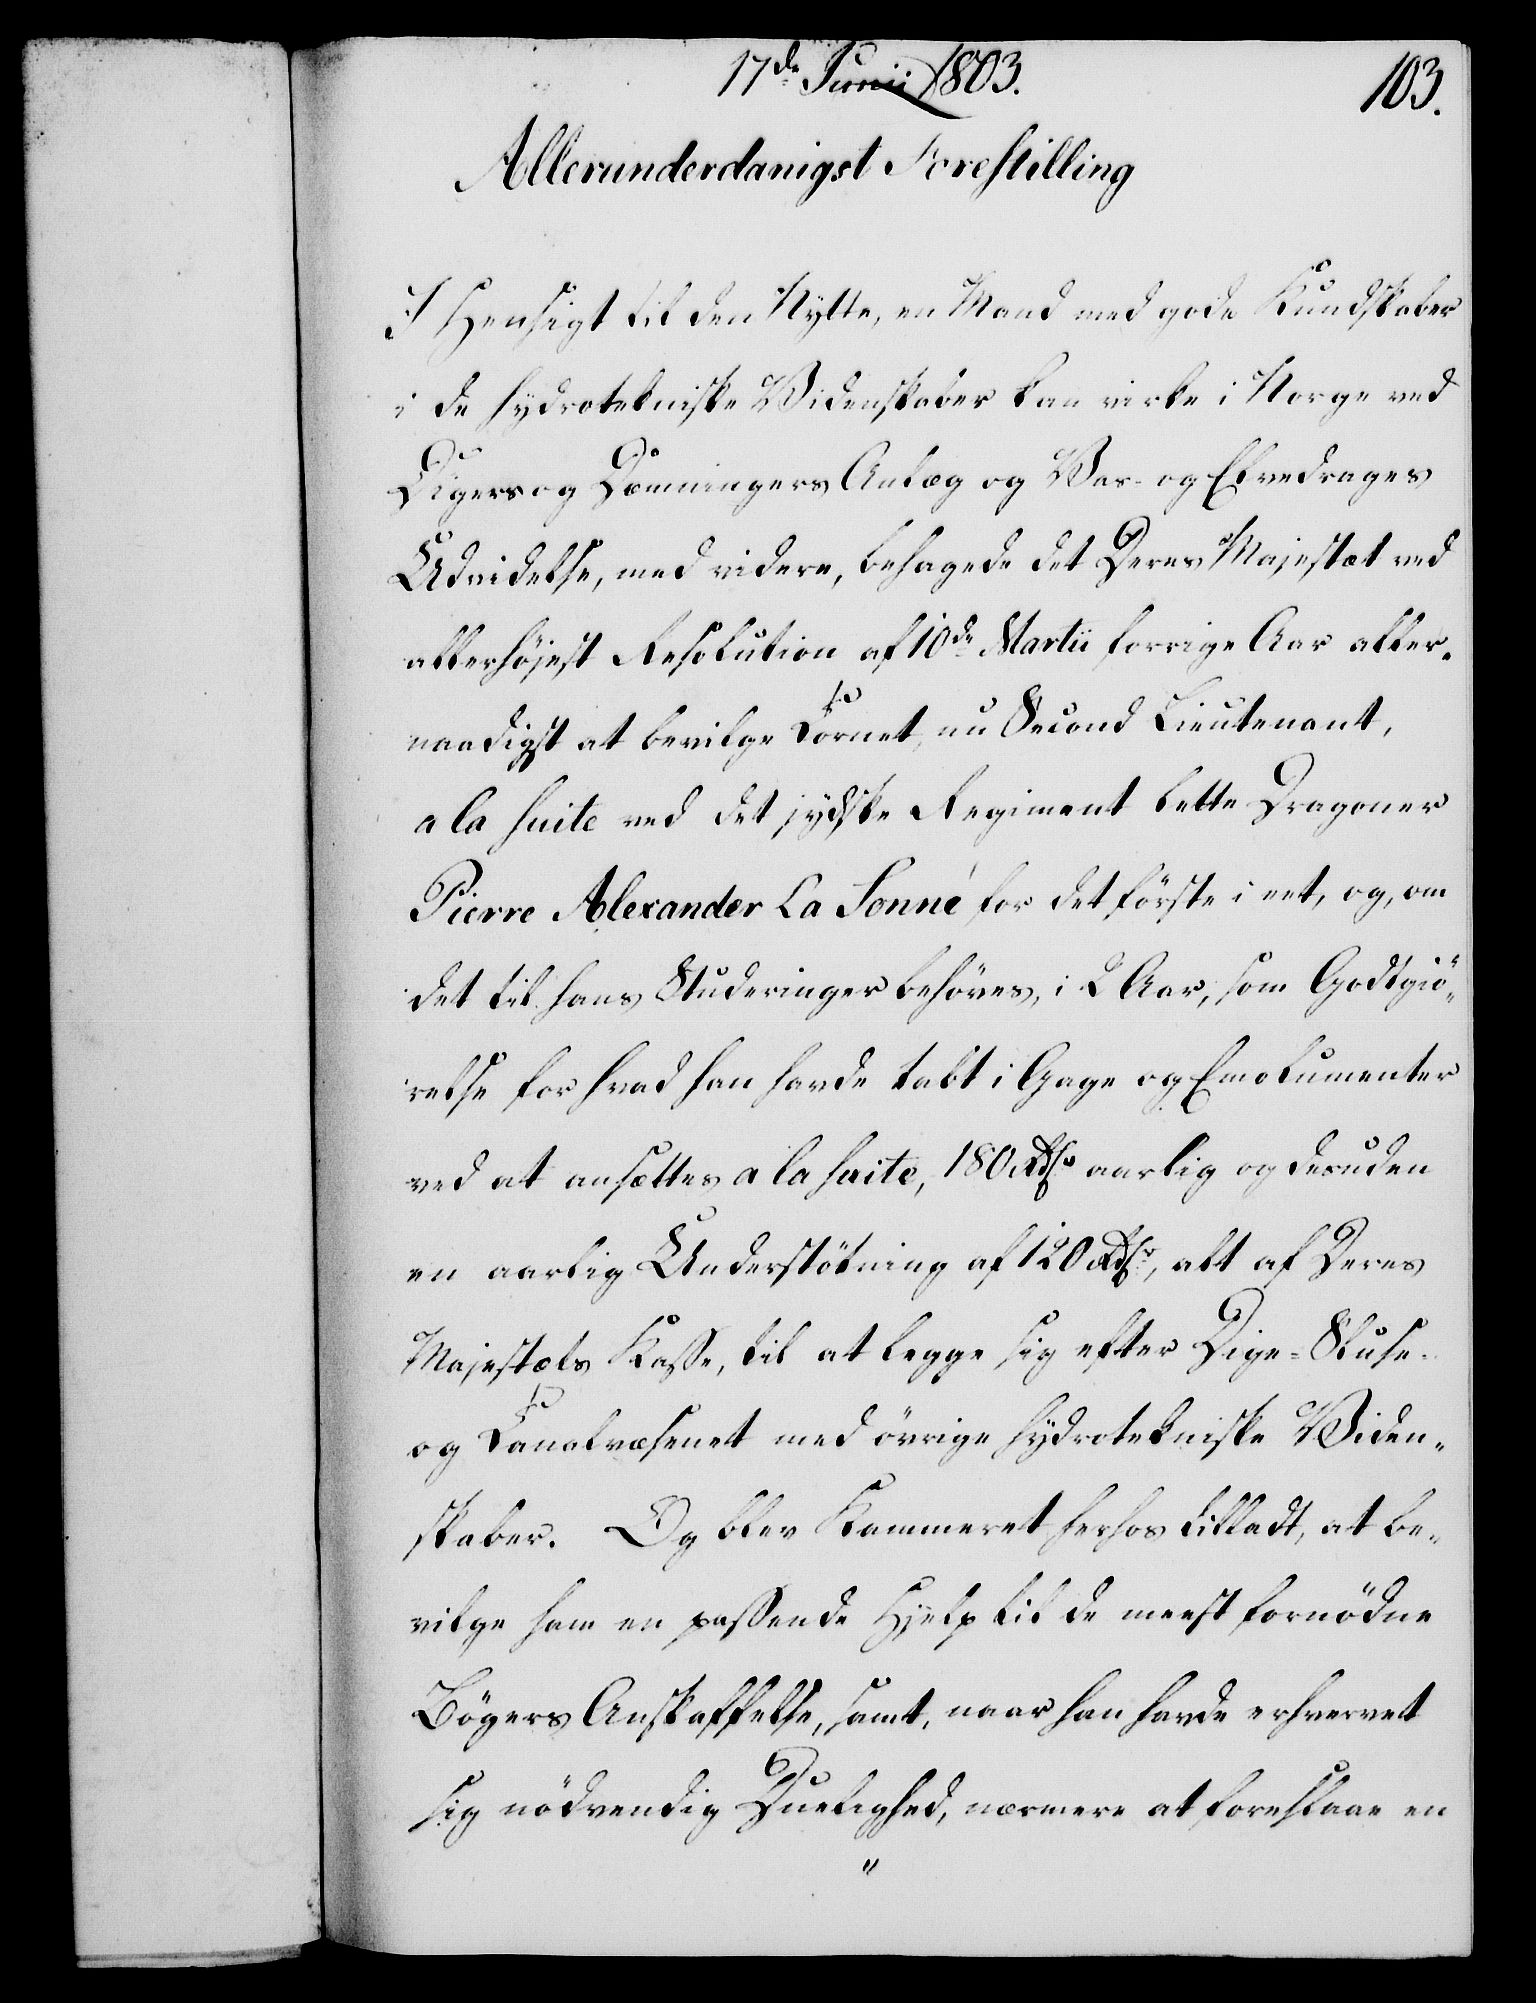 17de Junii 1803.
103.
Allerunderdanigst Forestilling
I Hensigt til den Nytte, en Mand med gode Kundskaber
i de hydrotekniske Videnskaber kan virke i Norge ved
Digers og Dæmningers Anlæg og Vas- og Elvedrages
Udvidelse, med videre, behagede det Deres Majestæt ved
allerhöjest Resolution af 10de Martii forrige Aar aller-
naadigst at bevilge Cornet, nu Second Lieutenant,
a la suite ved det jydske Regiment lette Dragoner
Pierre Alexander La Sonné for det förste i eet, og, om
det til hans Studeringer behöves, i 2 Aar, som Godtgiö-
relse for hvad han havde tabt i Gage og Emolumenter
ved at ansættes a la suite, 180 Rdlr aarlig og desuden
en aarlig Understötning af 120 Rdlr, alt af Deres
Majestæts Kasse, til at legge sig efter Dige- Sluse-
og Canalvæsenet med övrige hydrotekniske Viden-
skaber. Og blev Kammeret herhos tilladt, at be-
vilge ham en passende Hjelp til de meest fornödne
Bögers Anskaffelse, samt, naar han havde erhvervet
sig nödvendig Duelighed, nærmere at foreslaae en
"